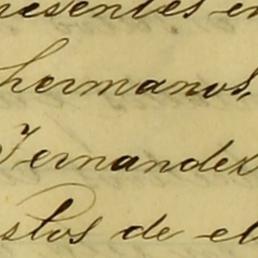 resentes en
hermanos,
Fernandez
stos de el